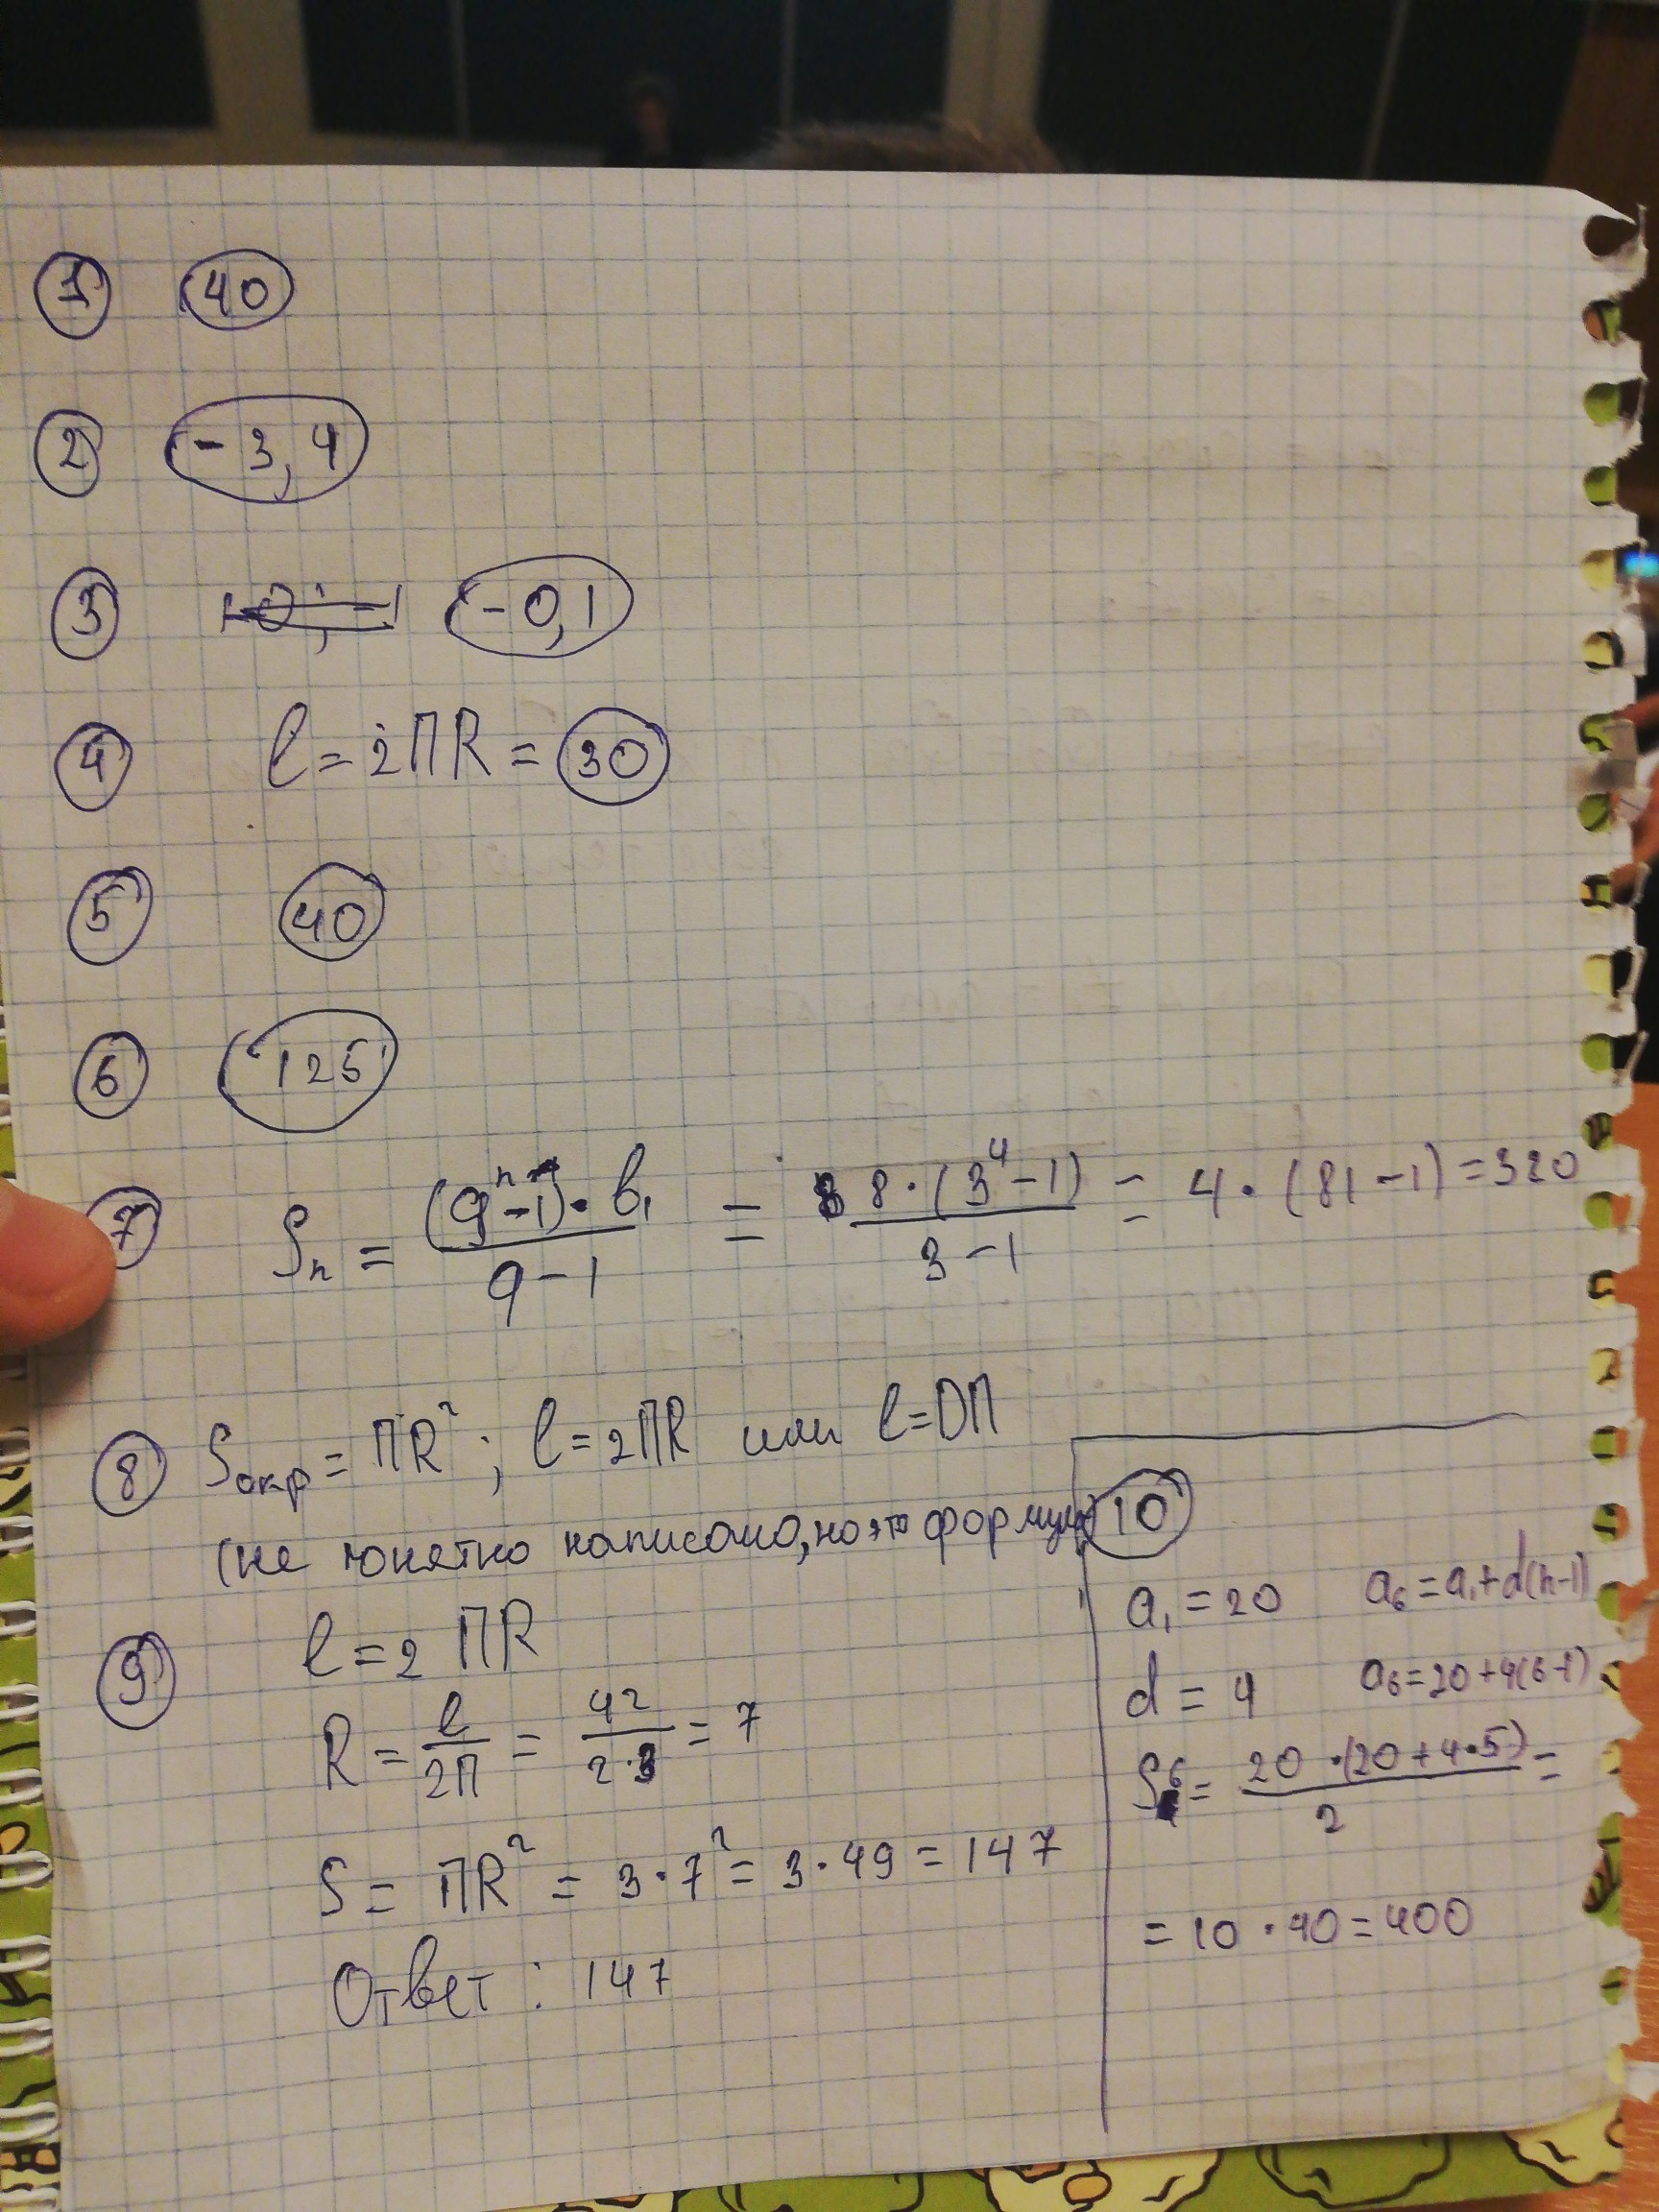 1 40
2 -3,4
3 -0,1
4 l = 2ПR = 30
5 40
6 125
7 Sn = (q^n-1)·b1 / q-1 = 8·(3^4-1) / 3-1 = 4·(81-1)=320
8 Sокр = ПR²; l=2ПR или l=DП
(не понятно написано, но это формулы)
9 l=2ПR
R = l/2П = 42/2·3 = 7
S = ПR² = 3·7² = 3·49 = 147
Ответ: 147
10
a1 = 20 a6 = a1+d(n-1)
d = 4 a6=20+4(6-1)
S6 = 20·(20+4·5) / 2 =
= 10·40=400